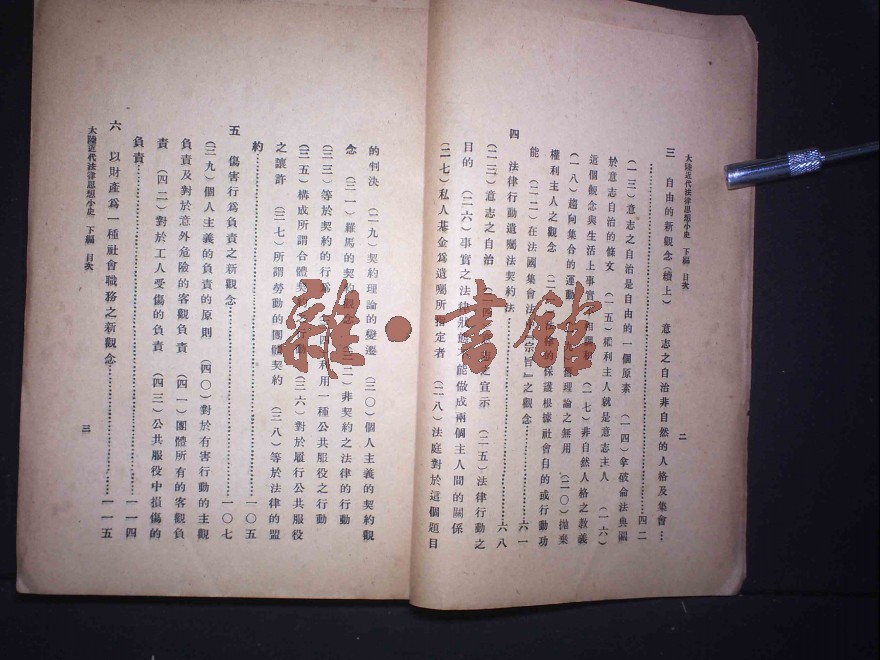 大陸近代法律思想小史　下編　目次
二
三　自由的新觀念（續上）　意志之自治非自然的人格及集會…
…………四二
（一三）意志之自治是自由的一個原素　（一四）拿破侖法典關
於意志自治的條文　（一五）權利主人就是意志主人　（一六）
這個觀念與生活上事實不相調和　（一七）非自然人格之教義
（一八）趨向集合的運動　理論之無用　（二〇）拋棄
權利主人之觀念　（二一）法律的保護根據社會目的或行動功
能　（二二）在法國集會法中『宗旨』之觀念…………六一
四　法律行動遺囑法契約法…………六八
（二三）意志之自治　（二四）意志之宣示　（二五）法律行動之
目的　（二六）事實之法律狀態不能做成兩個主人間的關係
（二七）私人基金爲遺囑所指定者　（二八）法庭對於這個題目
的判決　（二九）契約理論的變遷　（三〇）個人主義的契約觀
念　（三一）羅馬的契約觀念　（三二）非契約之法律的行動
（三三）等於契約的行爲　（三四）利用一種公共服役之行動
（三五）構成所謂合體契約之行動　（三六）對於履行公共服役
之讓許　（三七）所謂勞動的團體契約　（三八）等於法律的盟
約…………一〇五
五　傷害行爲負責之新觀念…………一〇七
（三九）個人主義的負責的原則　（四〇）對於有害行動的主觀
負責及對於意外危險的客觀負責　（四一）團體所有的客觀負
責　（四二）對於工人受傷的負責　（四三）公共服役中損傷的
負責…………一一四
六　以財產爲一種社會職務之新觀念…………一一五
大陸近代法律思想小史　下編　目次
三
雜·書館